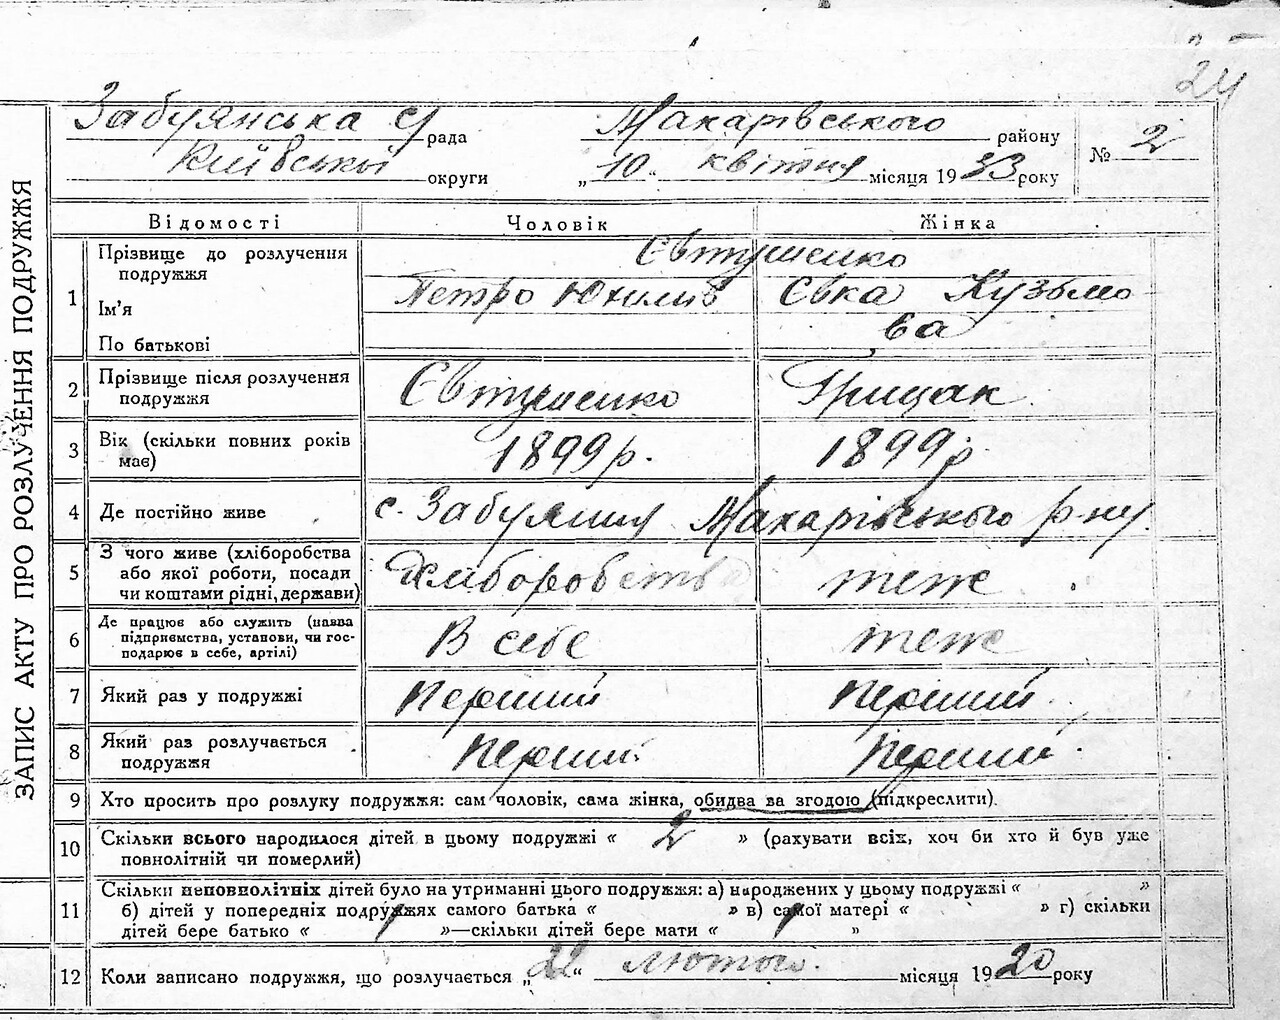 24
Забуянська с/рада Макарівського району № 2
Київської округи „10“ квітня місяця 1933 року
ЗАПИС АКТУ ПРО РОЗЛУЧЕННЯ ПОДРУЖЖЯ
Відомості Чоловік Жінка
1 Прізвище до розлучення подружжя Євтушенко
Ім'я Петро Юхимів Євка Кузьмо
По батькові ва
2 Прізвище після розлучення подружжя Євтушенко Грицак
3 Вік (скільки повних років має) 1899 р. 1899 р.
4 Де постійно живе с. Забуяння Макарівського р-ну.
5 З чого живе (хліборобства або якої роботи, посади чи коштами рідні, держави) Хліборобства теж
6 Де працює або служить (назва підприємства, установи, чи господарює в себе, артілі) В себе теж
7 Який раз у подружжі Перший Перший
8 Який раз розлучається подружжя Перший Перший
9 Хто просить про розлуку подружжя: сам чоловік, сама жінка, обидва за згодою (підкреслити).
10 Скільки всього народилося дітей в цьому подружжі « 2 » (рахувати всіх, хоч би хто й був уже
повнолітній чи померлий)
11 Скільки неповнолітніх дітей було на утриманні цього подружжя: а) народжених у цьому подружжі « »
б) дітей у попередніх подружжях самого батька « » в) самої матері « » г) скільки
дітей бере батько « 1 »—скільки дітей бере мати « 1 »
12 Коли записано подружжя, що розлучається „22“ лютого місяця 1920 року